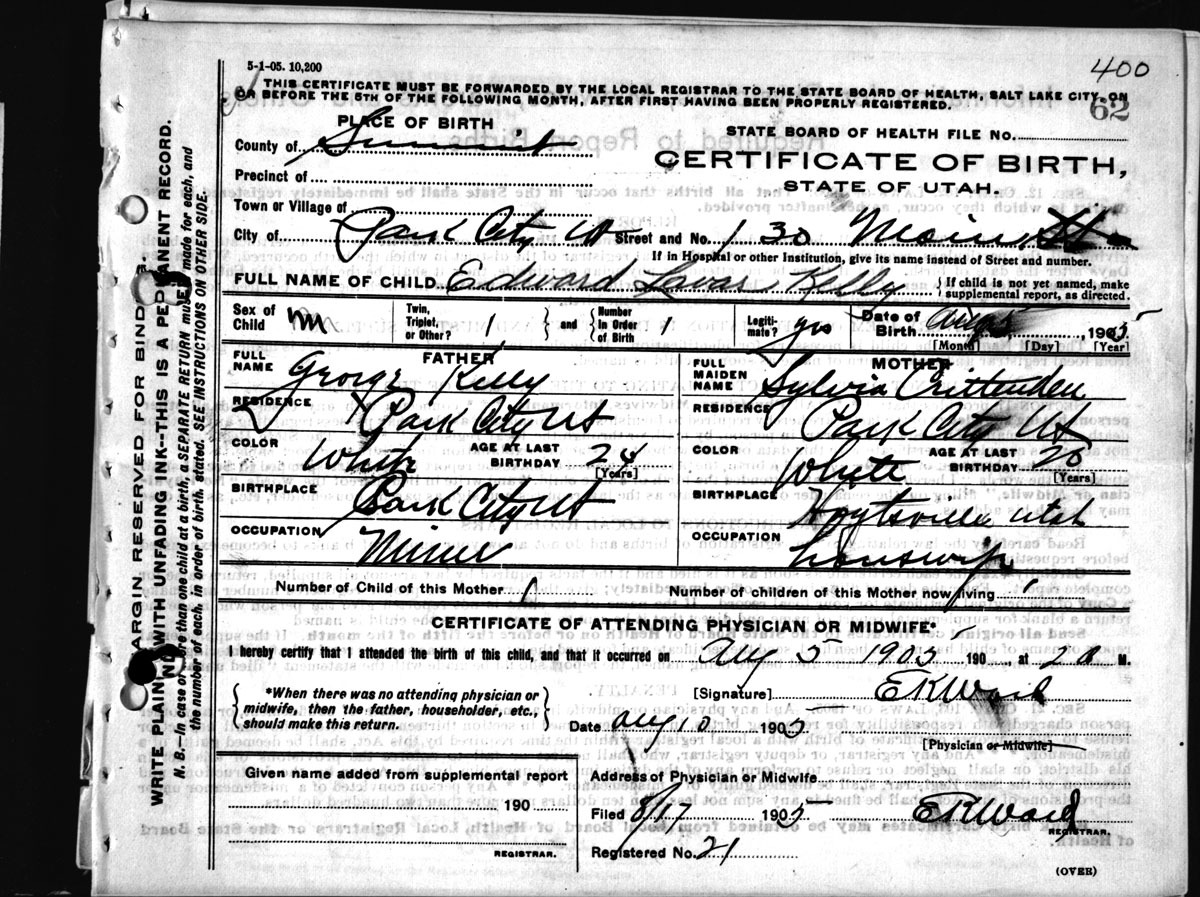 400
5-1-05. 10,200
THIS CERTIFICATE MUST BE FORWARDED BY THE LOCAL REGISTRAR TO THE STATE BOARD OF HEALTH, SALT LAKE CITY, ON
OR BEFORE THE 5TH OF THE FOLLOWING MONTH, AFTER FIRST HAVING BEEN PROPERLY REGISTERED.
62
PLACE OF BIRTH
STATE BOARD OF HEALTH FILE NO.
County of Summit
CERTIFICATE OF BIRTH,
Precinct of
STATE OF UTAH.
Town or Village of
City of Park City Ut Street and No. 130 Main St
If in Hospital or other Institution, give its name instead of Street and number.
FULL NAME OF CHILD Edward Lavar Kelly If child is not yet named, make supplemental report, as directed.
Sex of Child m Twin, Triplet, or Other? 1 and Number in Order of Birth 1 Legitimate? yes Date of Birth Aug 5, 1905
[Month] [Day] [Year]
FATHER
MOTHER
FULL NAME George Kelly
FULL MAIDEN NAME Sylvia Crittenden
RESIDENCE Park City Ut
RESIDENCE Park City Ut
COLOR White AGE AT LAST BIRTHDAY 24 [Years]
COLOR White AGE AT LAST BIRTHDAY 20 [Years]
BIRTHPLACE Park City Ut
BIRTHPLACE Hoytsville Utah
OCCUPATION Miner
OCCUPATION housewife
Number of Child of this Mother 1
Number of children of this Mother now living 1
CERTIFICATE OF ATTENDING PHYSICIAN OR MIDWIFE*
I hereby certify that I attended the birth of this child, and that it occurred on Aug 5 1905 190 , at 2 a M.
*When there was no attending physician or midwife, then the father, householder, etc., should make this return.
[Signature] E K Ward
Date Aug 10 1905
[Physician or Midwife]
Given name added from supplemental report
190
REGISTRAR.
Address of Physician or Midwife
Filed 8/17 1905 E K Ward
REGISTRAR.
Registered No. 21
(OVER)
MARGIN RESERVED FOR BINDING.
WRITE PLAINLY WITH UNFADING INK--THIS IS A PERMANENT RECORD.
N. B.—In case of more than one child at a birth, a SEPARATE RETURN must be made for each, and
the number of each, in order of birth, stated. SEE INSTRUCTIONS ON OTHER SIDE.